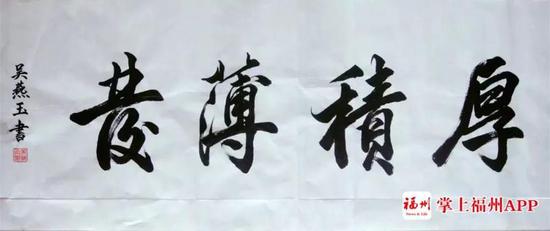 厚積薄發
吴燕玉書
福州 掌上福州APP
News & Life